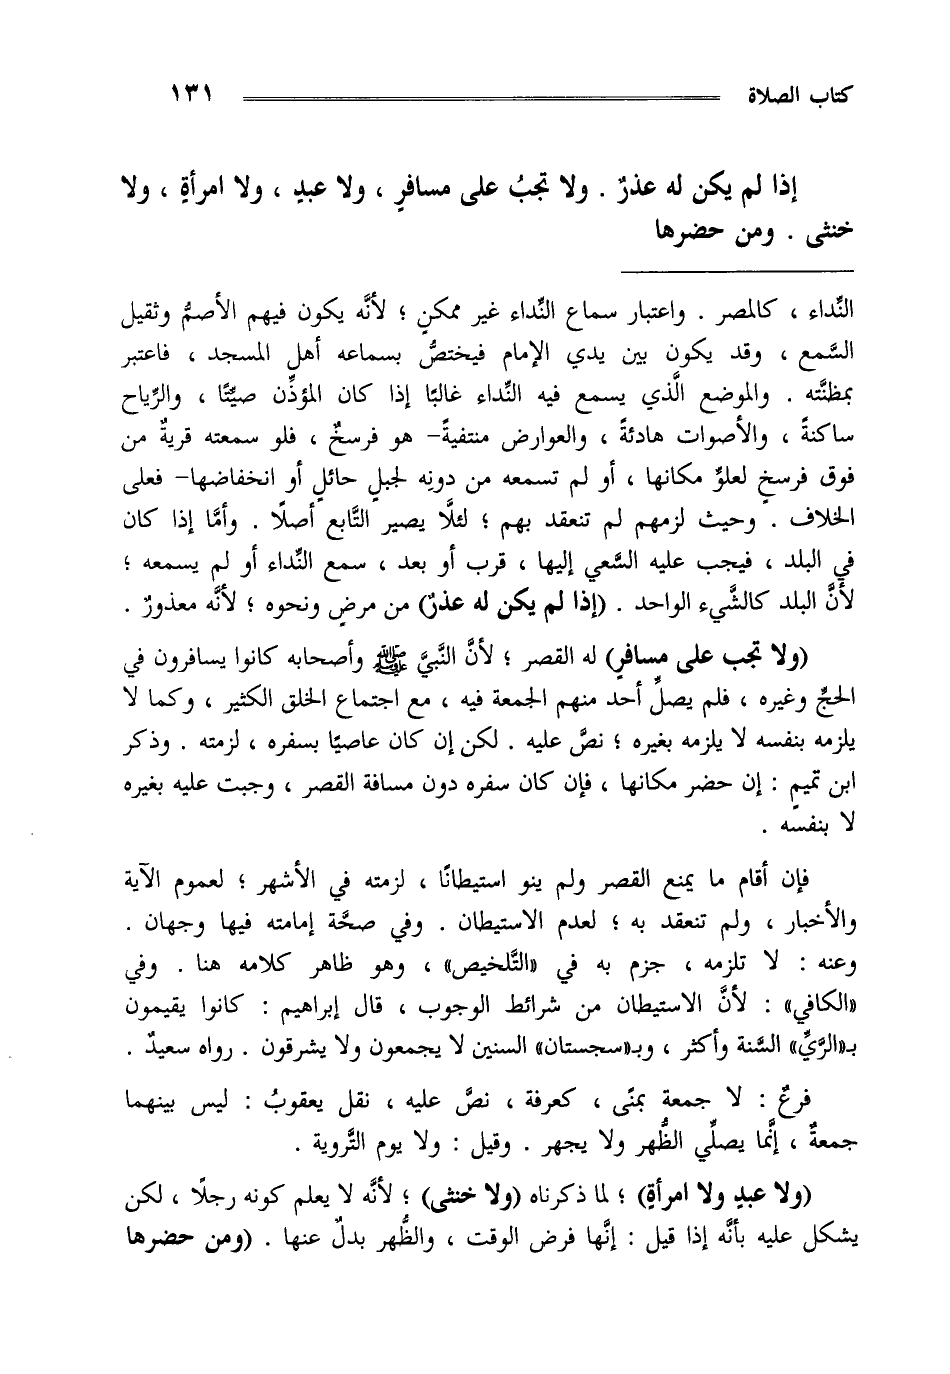 كتاب الصلاة ١٣١
إذا لم يكن له عذرٌ . ولا تجبُ على مسافرٍ ، ولا عبدٍ ، ولا امرأةٍ ، ولا
خنثى . ومن حضرها
النِّداء ، كالمصر . واعتبار سماع النِّداء غير ممكنٍ ؛ لأنَّه يكون فيهم الأصمُّ وثقيل
السَّمع ، وقد يكون بين يدي الإمام فيختصُّ بسماعه أهل المسجد ، فاعتبر
بمظنَّته . والموضع الَّذي يسمع فيه النِّداء غالبًا إذا كان المؤذِّن صيِّتًا ، والرِّياح
ساكنةً ، والأصوات هادئةً ، والعوارض منتفيةً– هو فرسخٌ ، فلو سمعته قريةٌ من
فوق فرسخٍ لعلوِّ مكانها ، أو لم تسمعه من دونه لجبلٍ حائلٍ أو انخفاضها– فعلى
الخلاف . وحيث لزمهم لم تنعقد بهم ؛ لئلَّا يصير التَّابع أصلًا . وأمَّا إذا كان
في البلد ، فيجب عليه السَّعي إليها ، قرب أو بعد ، سمع النِّداء أو لم يسمعه ؛
لأنَّ البلد كالشَّيء الواحد . (إذا لم يكن له عذرٌ) من مرضٍ ونحوه ؛ لأنَّه معذورٌ .
(ولا تجب على مسافرٍ) له القصر ؛ لأنَّ النَّبيَّ ﷺ وأصحابه كانوا يسافرون في
الحجِّ وغيره ، فلم يصلِّ أحد منهم الجمعة فيه ، مع اجتماع الخلق الكثير ، وكما لا
يلزمه بنفسه لا يلزمه بغيره ؛ نصَّ عليه . لكن إن كان عاصيًا بسفره ، لزمته . وذكر
ابن تميمٍ : إن حضر مكانها ، فإن كان سفره دون مسافة القصر ، وجبت عليه بغيره
لا بنفسه .
فإن أقام ما يمنع القصر ولم ينو استيطانًا ، لزمته في الأشهر ؛ لعموم الآية
والأخبار ، ولم تنعقد به ؛ لعدم الاستيطان . وفي صحَّة إمامته فيها وجهان .
وعنه : لا تلزمه ، جزم به في «التَّلخيص» ، وهو ظاهر كلامه هنا . وفي
«الكافي» : لأنَّ الاستيطان من شرائط الوجوب ، قال إبراهيم : كانوا يقيمون
بـ«الرَّيِّ» السَّنة وأكثر ، وبـ«سجستان» السنين لا يجمعون ولا يشرقون . رواه سعيدٌ .
فرعٌ : لا جمعة بمنًى ، كعرفة ، نصَّ عليه ، نقل يعقوبُ : ليس بينهما
جمعةٌ ، إنَّما يصلِّي الظُّهر ولا يجهر . وقيل : ولا يوم التَّروية .
(ولا عبدٍ ولا امرأةٍ) ؛ لما ذكرناه (ولا خنثى) ؛ لأنَّه لا يعلم كونه رجلًا ، لكن
يشكل عليه بأنَّه إذا قيل : إنَّها فرض الوقت ، والظُّهر بدلٌ عنها . (ومن حضرها